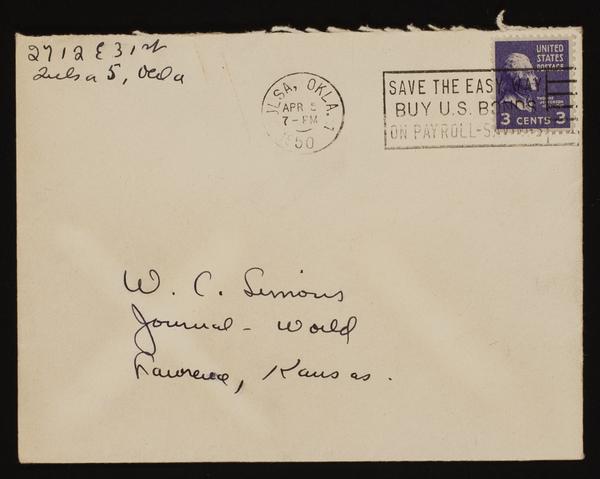 2712 E 31st
Tulsa 5, Okla
TULSA, OKLA. 1
APR 5
7-PM
1950
SAVE THE EASY WAY
BUY U.S. BONDS
ON PAYROLL SAVINGS
UNITED
STATES
POSTAGE
THOMAS
JEFFERSON
3 CENTS 3
W. C. Simons
Journal - World
Lawrence, Kansas.